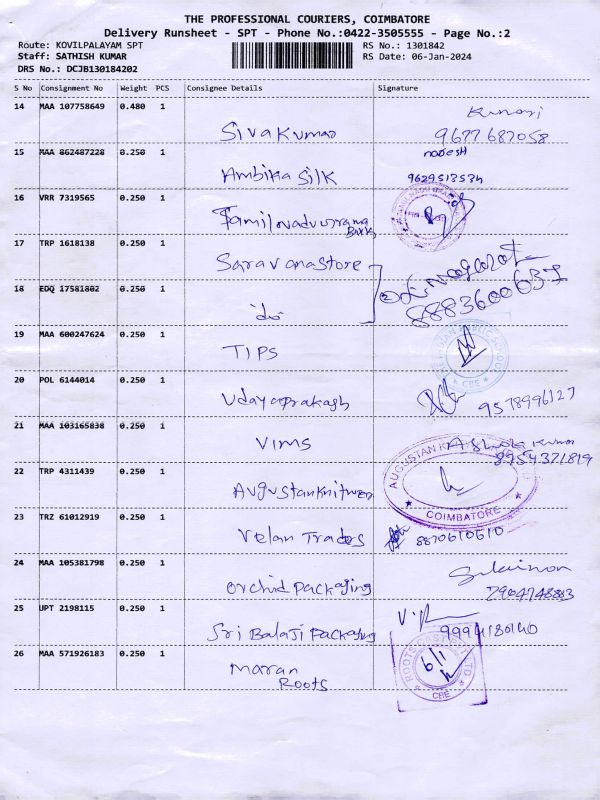 THE PROFESSIONAL COURIERS, COIMBATORE
Delivery Runsheet - SPT - Phone No.:0422-3505555 - Page No.:2
Route: KOVILPALAYAM SPT
Staff: SATHISH KUMAR
DRS No.: DCJB130184202
RS No.: 1301842
RS Date: 06-Jan-2024
S No Consignment No Weight PCS Consignee Details Signature
14 MAA 107758649 0.480 1
Siva Kumar
15 MAA 862487228 0.250 1
Ambika Silk
16 VRR 7319565 0.250 1
Bank
17 TRP 1618138 0.250 1
Saravanastore
18 EDQ 17581802 0.250 1
8883600637
19 MAA 600247624 0.250 1
TIPS
CBE
20 POL 6144014 0.250 1
Udayaprakash 9578996127
21 MAA 103165838 0.250 1
VIMS
22 TRP 4311439 0.250 1
AUGUSTAN
COIMBATORE
23 TRZ 61012919 0.250 1
Velan Trades 8870610610
24 MAA 105381798 0.250 1
Orchid Packaging
25 UPT 2198115 0.250 1
Sri Balaji Packaging
26 MAA 571926183 0.250 1
Maran
Roots
ROOTS CAST LTD
6/1
CBE